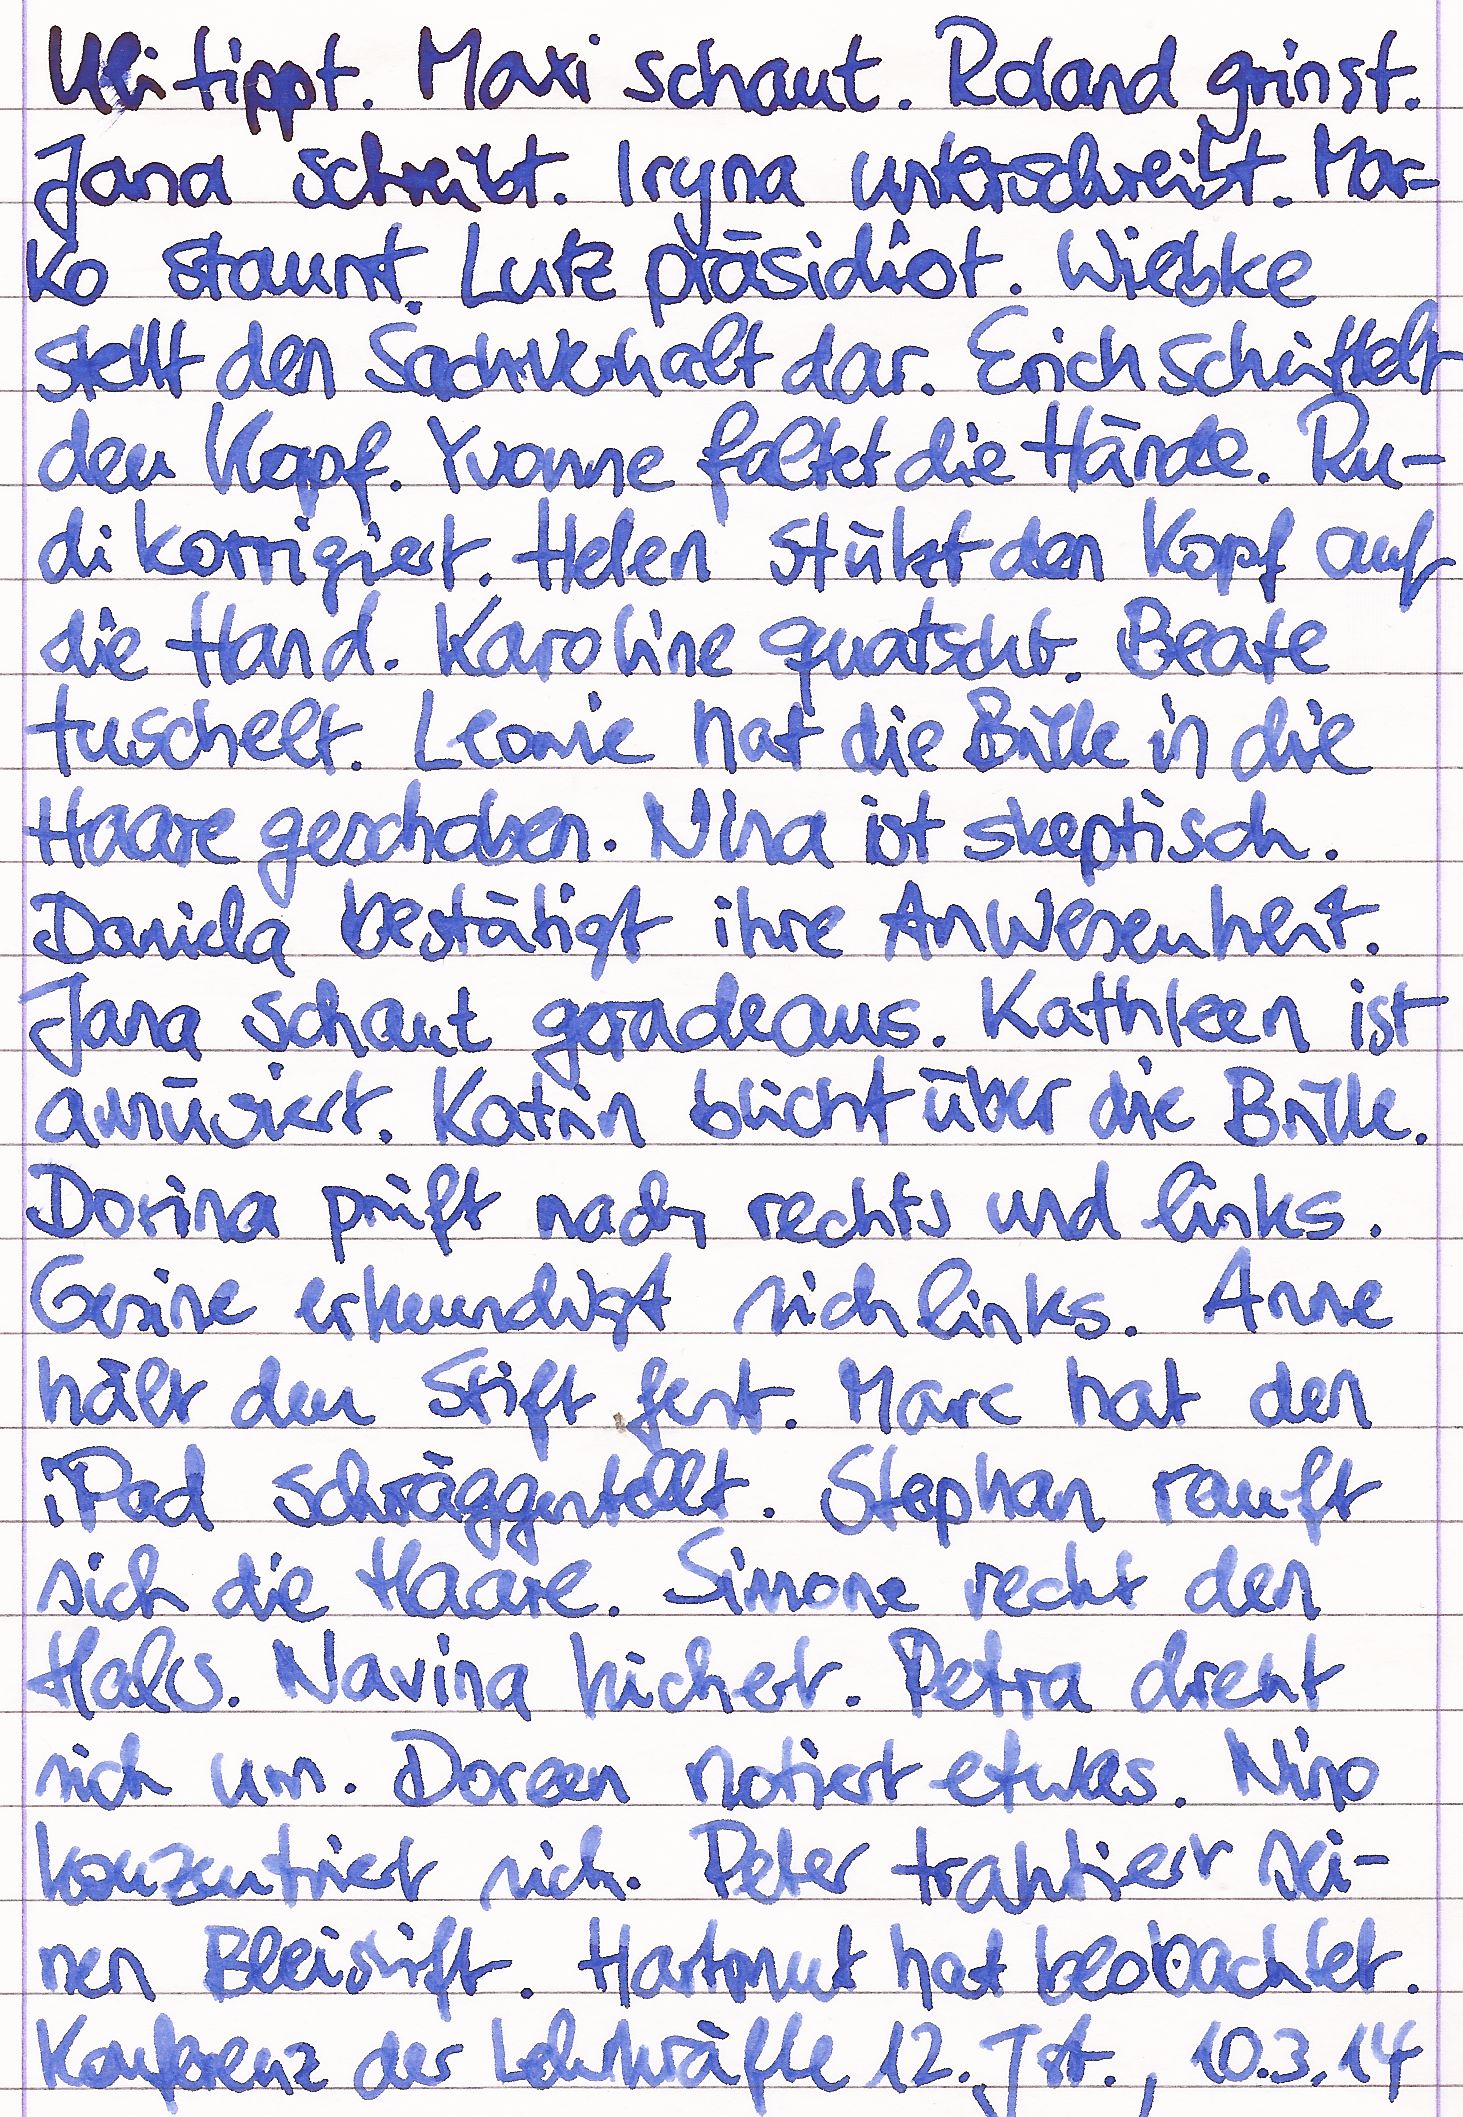 Uli tippt. Maxi schaut. Roland grinst.
Jana schreibt. Iryna unterschreibt. Mar-
ko staunt. Lutz präsidiert. Wiebke
stellt den Sachverhalt dar. Erich schüttelt
den Kopf. Yvonne faltet die Hände. Ru-
di korrigiert. Helen stützt den Kopf auf
die Hand. Karoline quatscht. Beate
tuschelt. Leonie hat die Brille in die
Haare geschoben. Nina ist skeptisch.
Daniela bestätigt ihre Anwesenheit.
Jana schaut geradeaus. Kathleen ist
amüsiert. Katrin blickt über die Brille.
Dorina prüft nach rechts und links.
Gesine erkundigt sich links. Anne
hält den Stift fest. Marc hat den
iPad schräggestellt. Stephan rauft
sich die Haare. Simone reckt den
Hals. Navina kichert. Petra dreht
sich um. Doreen notiert etwas. Nino
konzentriert sich. Peter traktiert sei-
nen Bleistift. Hartmut hat beobachtet.
Konferenz der Lehrkräfte 12. Jst., 10.3.14